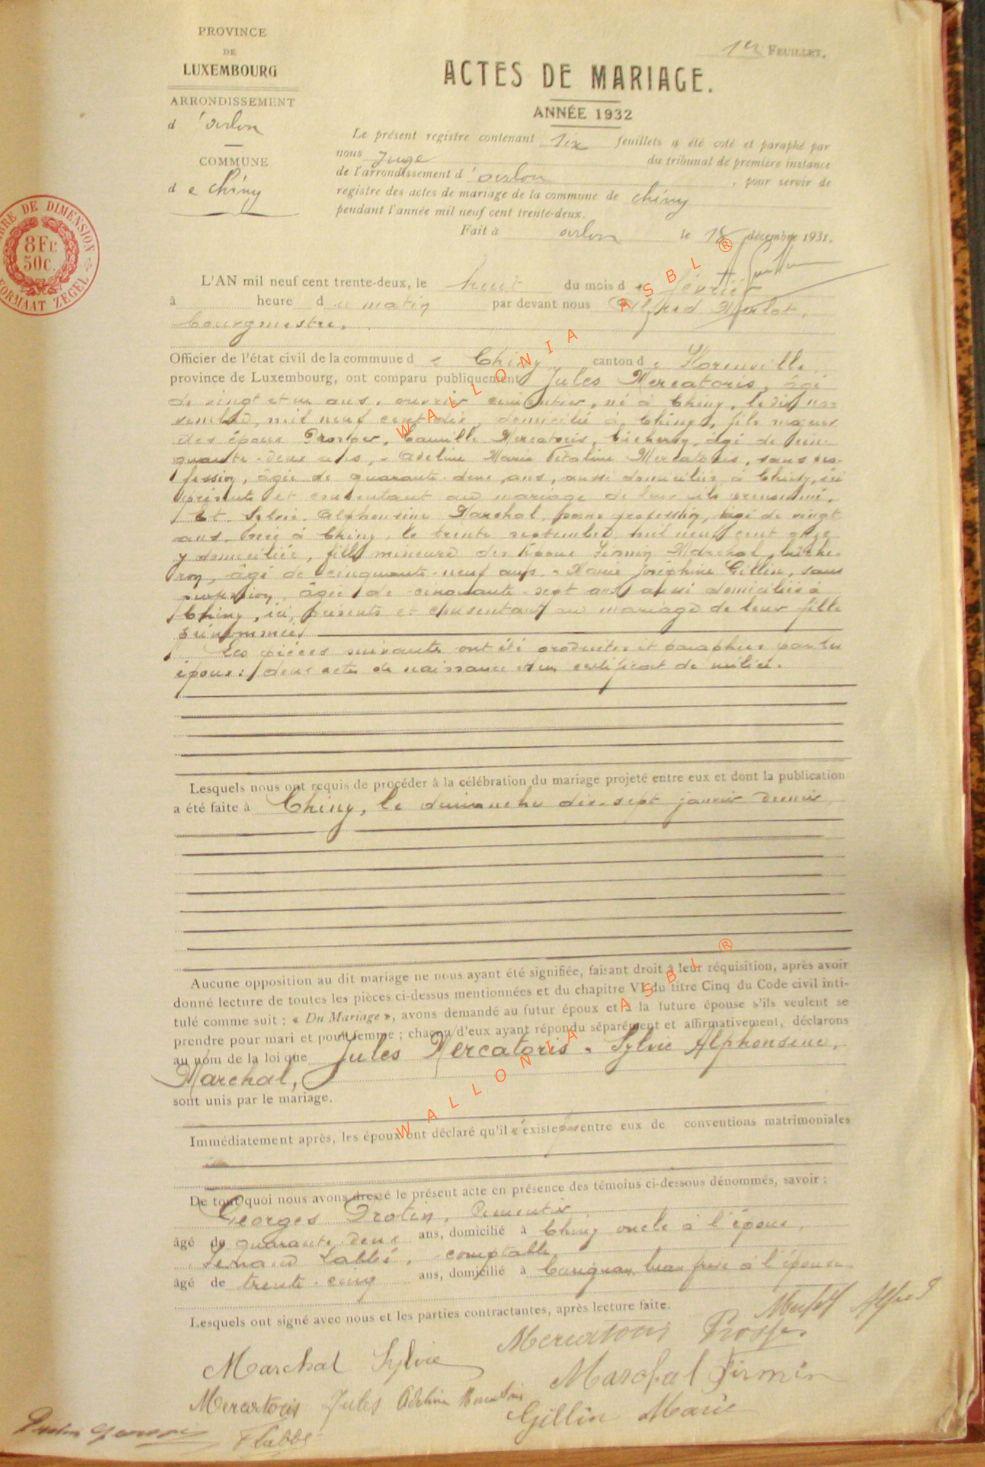 PROVINCE
DE
LUXEMBOURG
ARRONDISSEMENT
d'Arlon
COMMUNE
de Chiny
TIMBRE DE DIMENSION
8 Fr.
50c.
FORMAAT ZEGEL
1er FEUILLET.
ACTES DE MARIAGE.
ANNÉE 1932
Le présent registre contenant six feuillets a été coté et paraphé par
nous Juge du tribunal de première instance
de l'arrondissement d'Arlon, pour servir de
registre des actes de mariage de la commune de Chiny
pendant l'année mil neuf cent trente-deux.
Fait à Arlon le 18 décembre 1931.
L'AN mil neuf cent trente-deux, le huit du mois de février
à heure du matin par devant nous Alfred
bourgmestre.
Officier de l'état civil de la commune de Chiny canton de Florenville,
province de Luxembourg, ont comparu publiquement Jules Mercatoris, âgé
de vingt et un ans, ouvrier né à Chiny, le
mil neuf cent dix, domicilié à Chiny, fils majeur
des époux Prosper, Camille Mercatoris, bûcheron, âgé de cin-
quante-deux ans, Adeline Marie Mercatoris, sans pro-
fession, âgée de quarante deux ans, aussi domiciliés à Chiny, ici
présents et consentant au mariage de leur fils prénommé.
Et Sylvie Alphonsine Marchal, sans profession, âgée de vingt
ans, née à Chiny, le trente septembre mil neuf cent onze
y domiciliée, fille mineure des époux Firmin Marchal, bûche-
ron, âgé de cinquante-neuf ans - Marie Joséphine Gillin, sans
profession, âgée de cinquante-sept ans, aussi domiciliés à
Chiny, ici présents et consentant au mariage de leur fille
prénommée
Les pièces suivantes ont été produites et paraphées par les
époux: deux actes de naissance et un certificat de milice.
Lesquels nous ont requis de procéder à la célébration du mariage projeté entre eux et dont la publication
a été faite à Chiny, le dimanche dix-sept janvier dernier
Aucune opposition au dit mariage ne nous ayant été signifiée, faisant droit à leur réquisition, après avoir
donné lecture de toutes les pièces ci-dessus mentionnées et du chapitre VI du titre Cinq du Code civil inti-
tulé comme suit : « Du Mariage », avons demandé au futur époux et à la future épouse s'ils veulent se
prendre pour mari et pour femme ; chacun d'eux ayant répondu séparément et affirmativement, déclarons
au nom de la loi que Jules Mercatoris - Sylvie Alphonsine,
Marchal,
sont unis par le mariage.
Immédiatement après, les époux ont déclaré qu'il n'existe pas entre eux de conventions matrimoniales
De tout quoi nous avons dressé le présent acte en présence des témoins ci-dessous dénommés, savoir :
Georges Protin, cimentier,
âgé de quarante-deux ans, domicilié à Chiny oncle à l'époux,
Fernand Labbé, comptable,
âgé de trente-cinq ans, domicilié à Carignan beau frère à l'épouse
Lesquels ont signé avec nous et les parties contractantes, après lecture faite.
Alfred
Mercatoris Prosper
Marchal Sylvie
Marchal Firmin
Mercatoris Jules Adeline Mercatoris
Gillin Marie
Labbé
WALLONIA ASBL ®
WALLONIA ASBL ®